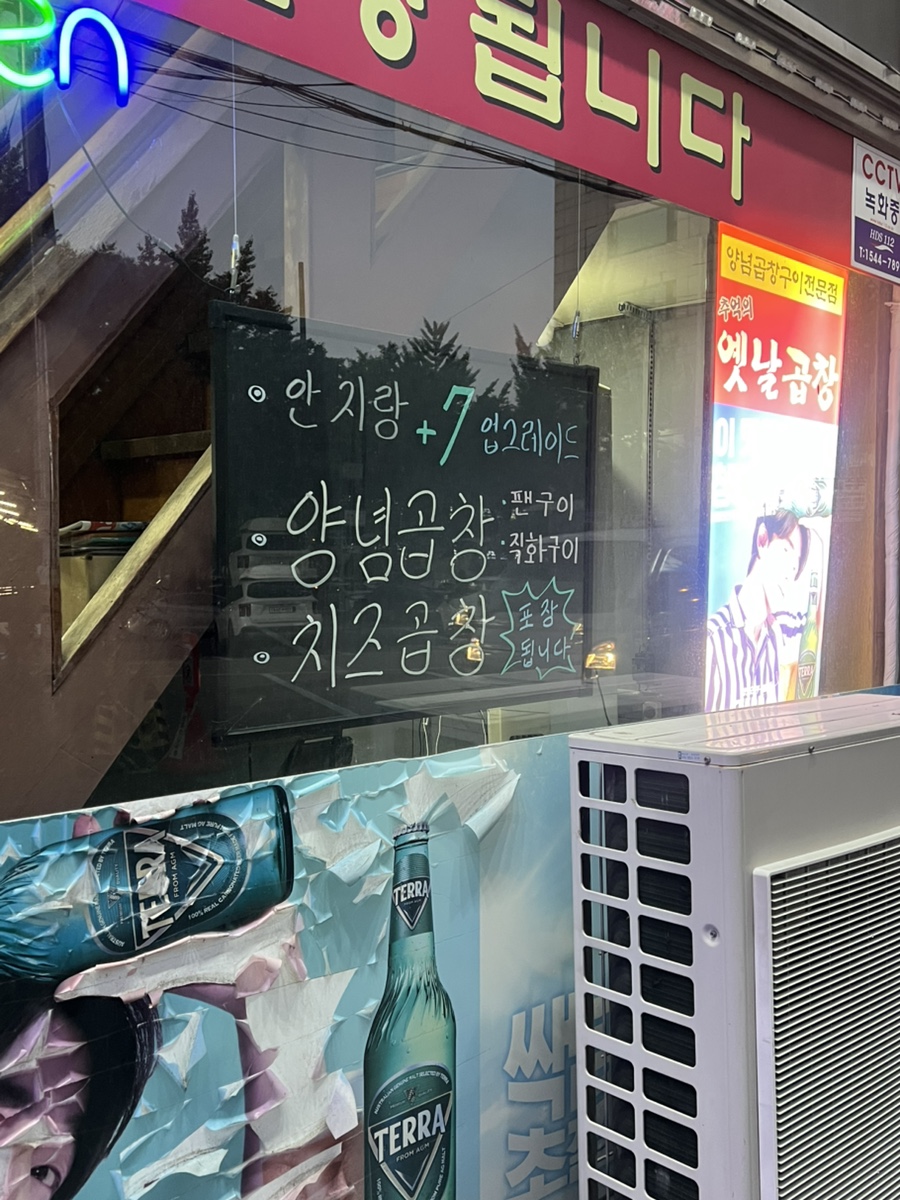 en
됩니다
CCTV
녹화중
HDS 112
양념곱창구이전문점
추억의
옛날곱창
안지랑 +7 업그레이드
양념곱창 ·팬구이
·직화구이
치즈곱창 포장
됩니다
TERRA
TERRA
FROM AGM
TERRA
TERRA
FROM AGM